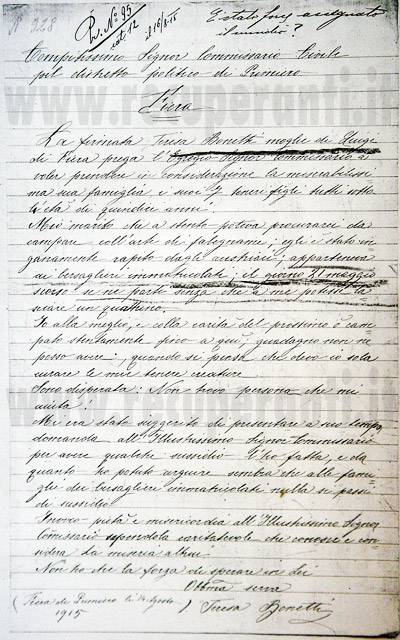 N 928
Pr. N° 95
cat. 12
il 16/8-15
È stato forse assegnato
il sussidio?
Compitissimo Signor Commissario Civile
pel distretto politico di Primiero
Fiera
La firmata Teresa Bonetti moglie di Luigi
di Fiera prega l'Egregio Signor Commissario a
voler prendere in considerazione la miserabilissi
ma sua famiglia e suoi 7 teneri figli tutti sotto
l'età di quindici anni.
Mio marito che a stento poteva procurarci da
campare coll'arte di falegname; egli è stato in
ganamente rapito dagli austriaci; apparteneva
ai bersaglieri immatricolati; il giorno 21 maggio
scorso se ne partì senza che a me potesse la
sciare un quattrino.
Io alla meglio, e colla carità del prossimo ò cam
pato stentamente fino a qui; guadagno non ne
posso avere; quando si pensa che devo io sola
curare le mie tenere creature
Sono disperata: Non trovo persona che mi
aiuta!
Mi era stato suggerito di presentare a suo tempo
domanda all'Illustrissimo Signor Commissario
per avere qualche sussidio l'ho fatta, e da
quanto ho potuto arguire sembra che alle fami
glie dei bersaglieri immatricolati nulla si passi
di sussidio.
Invoco pietà e misericordia all'Illustrissimo Signor
Comissario essendola caritatevole che conosce e con
sidera la miseria altrui.
Non ho che la forza di sperare in Lei
Obbma serva
( Fiera di Primiero li 14 Agosto
1915 )
Teresa Bonetti